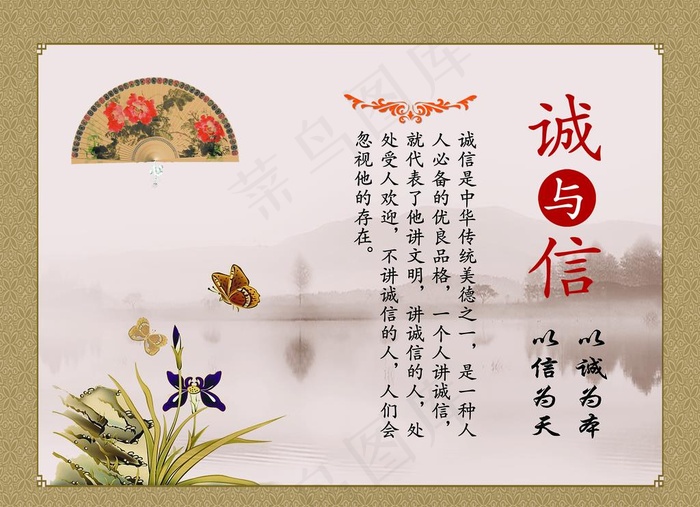 诚与信
以诚为本
以信为天
诚信是中华传统美德之一，是一种人
人必备的优良品格，一个人讲诚信，
就代表了他讲文明，讲诚信的人，处
处受人欢迎，不讲诚信的人，人们会
忽视他的存在。
菜鸟图库